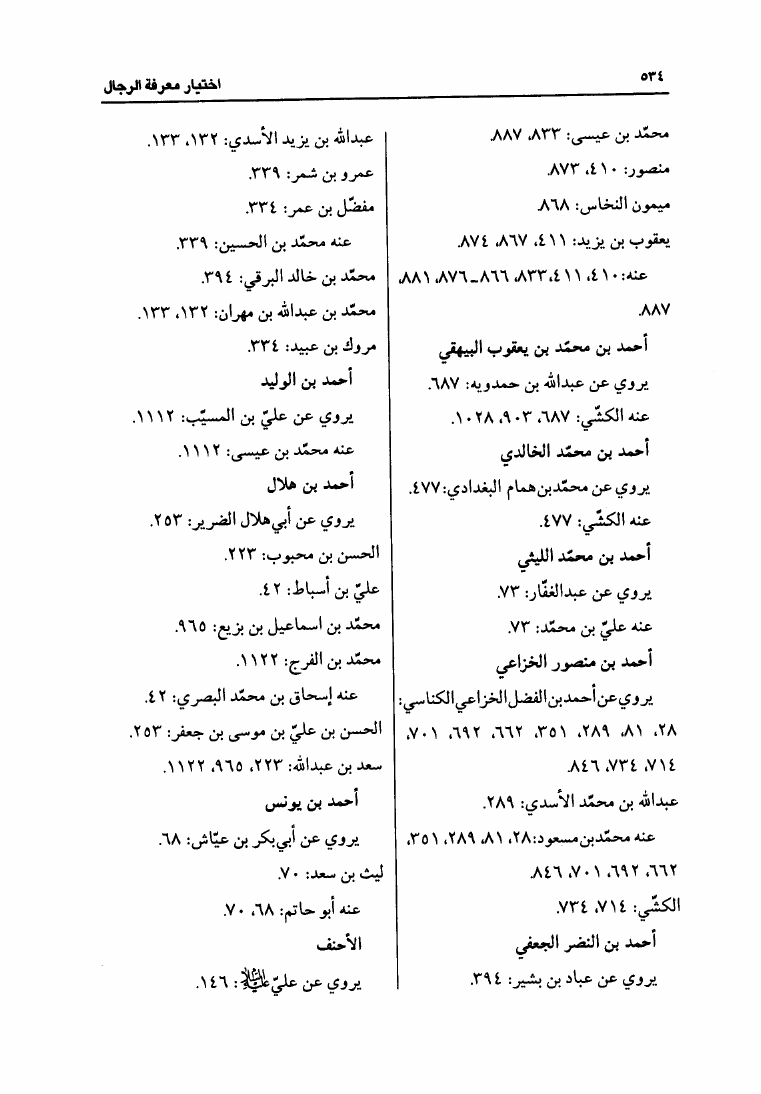 ٥٣٤
اختيار معرفة الرجال
محمّد بن عيسى: ٨٣٣، ٨٨٧.
منصور: ٤١٠، ٨٧٣.
ميمون النخاس: ٨٦٨.
يعقوب بن يزيد: ٤١١، ٨٦٧، ٨٧٤.
عنه: ٤١٠، ٤١١، ٨٣٣، ٨٦٦ـ٨٧٦، ٨٨١،
٨٨٧.
أحمد بن محمّد بن يعقوب البيهقي
يروي عن عبدالله بن حمدويه: ٦٨٧.
عنه الكشّي: ٦٨٧، ٩٠٣، ١٠٢٨.
أحمد بن محمّد الخالدي
يروي عن محمّدبن همام البغدادي: ٤٧٧.
عنه الكشّي: ٤٧٧.
أحمد بن محمّد الليثي
يروي عن عبدالغفّار: ٧٣.
عنه عليّ بن محمّد: ٧٣.
أحمد بن منصور الخزاعي
يروي عن أحمدبن الفضل الخزاعي الكناسي:
٢٨، ٨١، ٢٨٩، ٣٥١، ٦٦٢، ٦٩٢، ٧٠١،
٧١٤، ٧٣٤، ٨٤٦.
عبدالله بن محمّد الأسدي: ٢٨٩.
عنه محمّدبن مسعود: ٢٨، ٨١، ٢٨٩، ٣٥١،
٦٦٢، ٦٩٢، ٧٠١، ٨٤٦.
الكشّي: ٧١٤، ٧٣٤.
أحمد بن النضر الجعفي
يروي عن عباد بن بشير: ٣٩٤.
عبدالله بن يزيد الأسدي: ١٣٢، ١٣٣.
عمرو بن شمر: ٣٣٩.
مفضّل بن عمر: ٣٣٤.
عنه محمّد بن الحسين: ٣٣٩.
محمّد بن خالد البرقي: ٣٩٤.
محمّد بن عبدالله بن مهران: ١٣٢، ١٣٣.
مروك بن عبيد: ٣٣٤.
أحمد بن الوليد
يروي عن عليّ بن المسيّب: ١١١٢.
عنه محمّد بن عيسى: ١١١٢.
أحمد بن هلال
يروي عن أبي هلال الضرير: ٢٥٣.
الحسن بن محبوب: ٢٢٣.
عليّ بن أسباط: ٤٢.
محمّد بن اسماعيل بن بزيع: ٩٦٥.
محمّد بن الفرج: ١١٢٢.
عنه إسحاق بن محمّد البصري: ٤٢.
الحسن بن عليّ بن موسى بن جعفر: ٢٥٣.
سعد بن عبدالله: ٢٢٣، ٩٦٥، ١١٢٢.
أحمد بن يونس
يروي عن أبي‌بكر بن عيّاش: ٦٨.
ليث بن سعد: ٧٠.
عنه أبو حاتم: ٦٨، ٧٠.
الأحنف
يروي عن عليّ عليه السلام: ١٤٦.